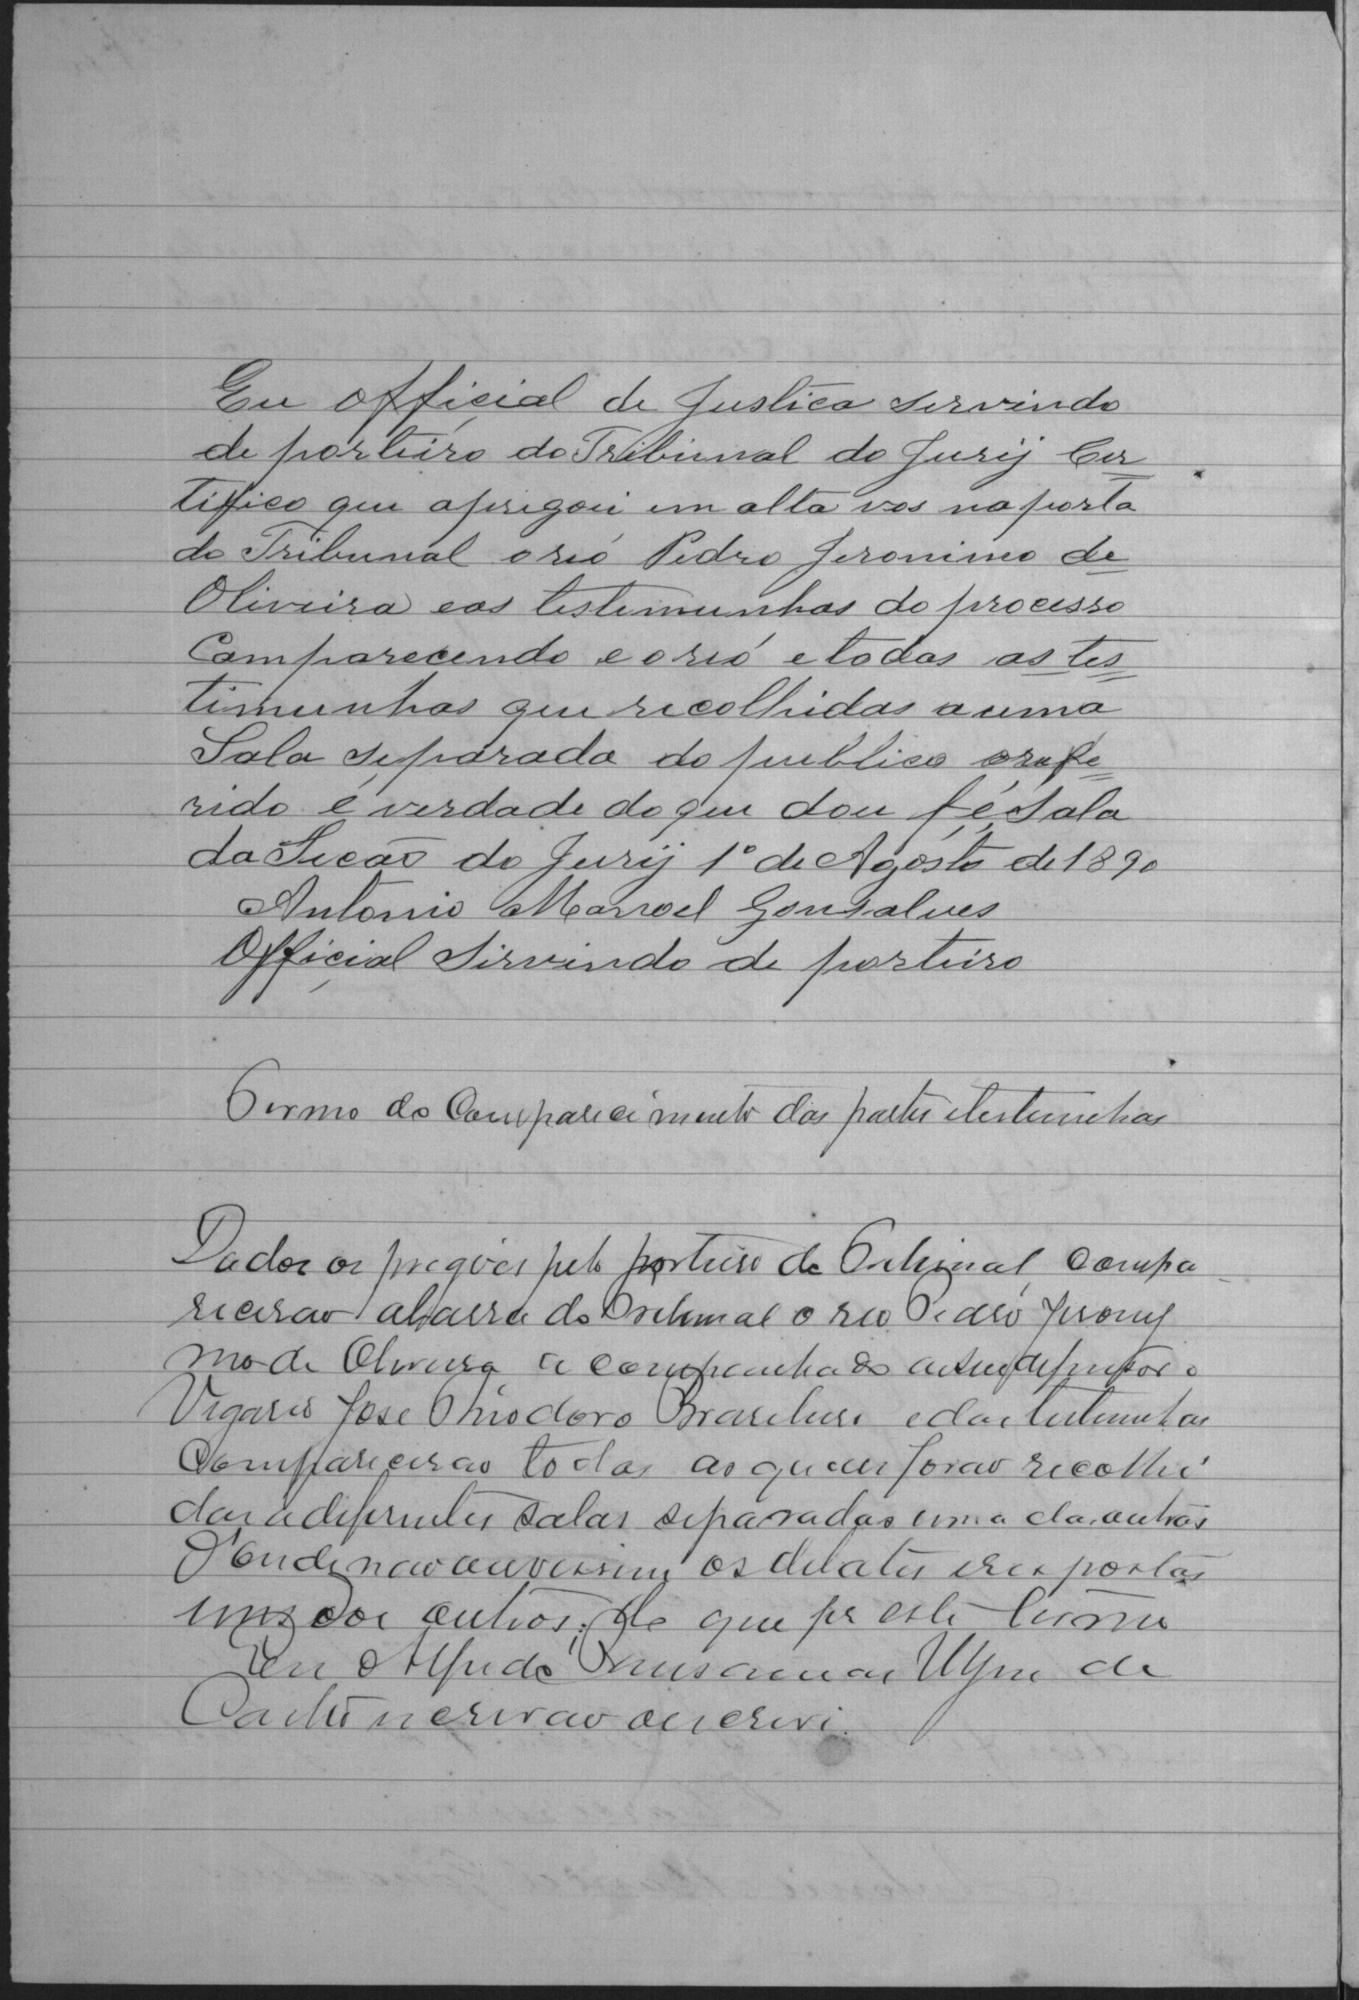 Eu official de Justiça servindo
de porteiro do Tribunal do Jurij Cer
tifico que apregoei em alta vos na porta
do Tribunal o reó Pedro Jeronimo de
Oliveira e as testemunhas do processo
Comparecendo e o reó e todas as tes
timunhas que recolhidas a uma
Sala separada do publico o refe
rido é verdade do que dou fé Sala
da Seção do Jurij 1º de Agosto de 1890
Antonio Manoel Gonsalves
Official Sirvindo de porteiro
Termo do Comparecimento das partes e testemunhas
Dados os pregões pelo porteiro do Tribunal, compa
recerao a barra do Tribunal o reo Pedro Jerony
mo de Oliveira acompanhado de seu defensor o
Vigario Jose Theodoro Brasileiro e das testemunhas
Comparecerao todas as quaes forao recolhi
das a diferentes salas separadas uma das outras
D'onde nao ouvissem os debates e respostas
uns dos outros; do que fis este termo
Eu Alfredo de
Castro escrivao o escrevi.